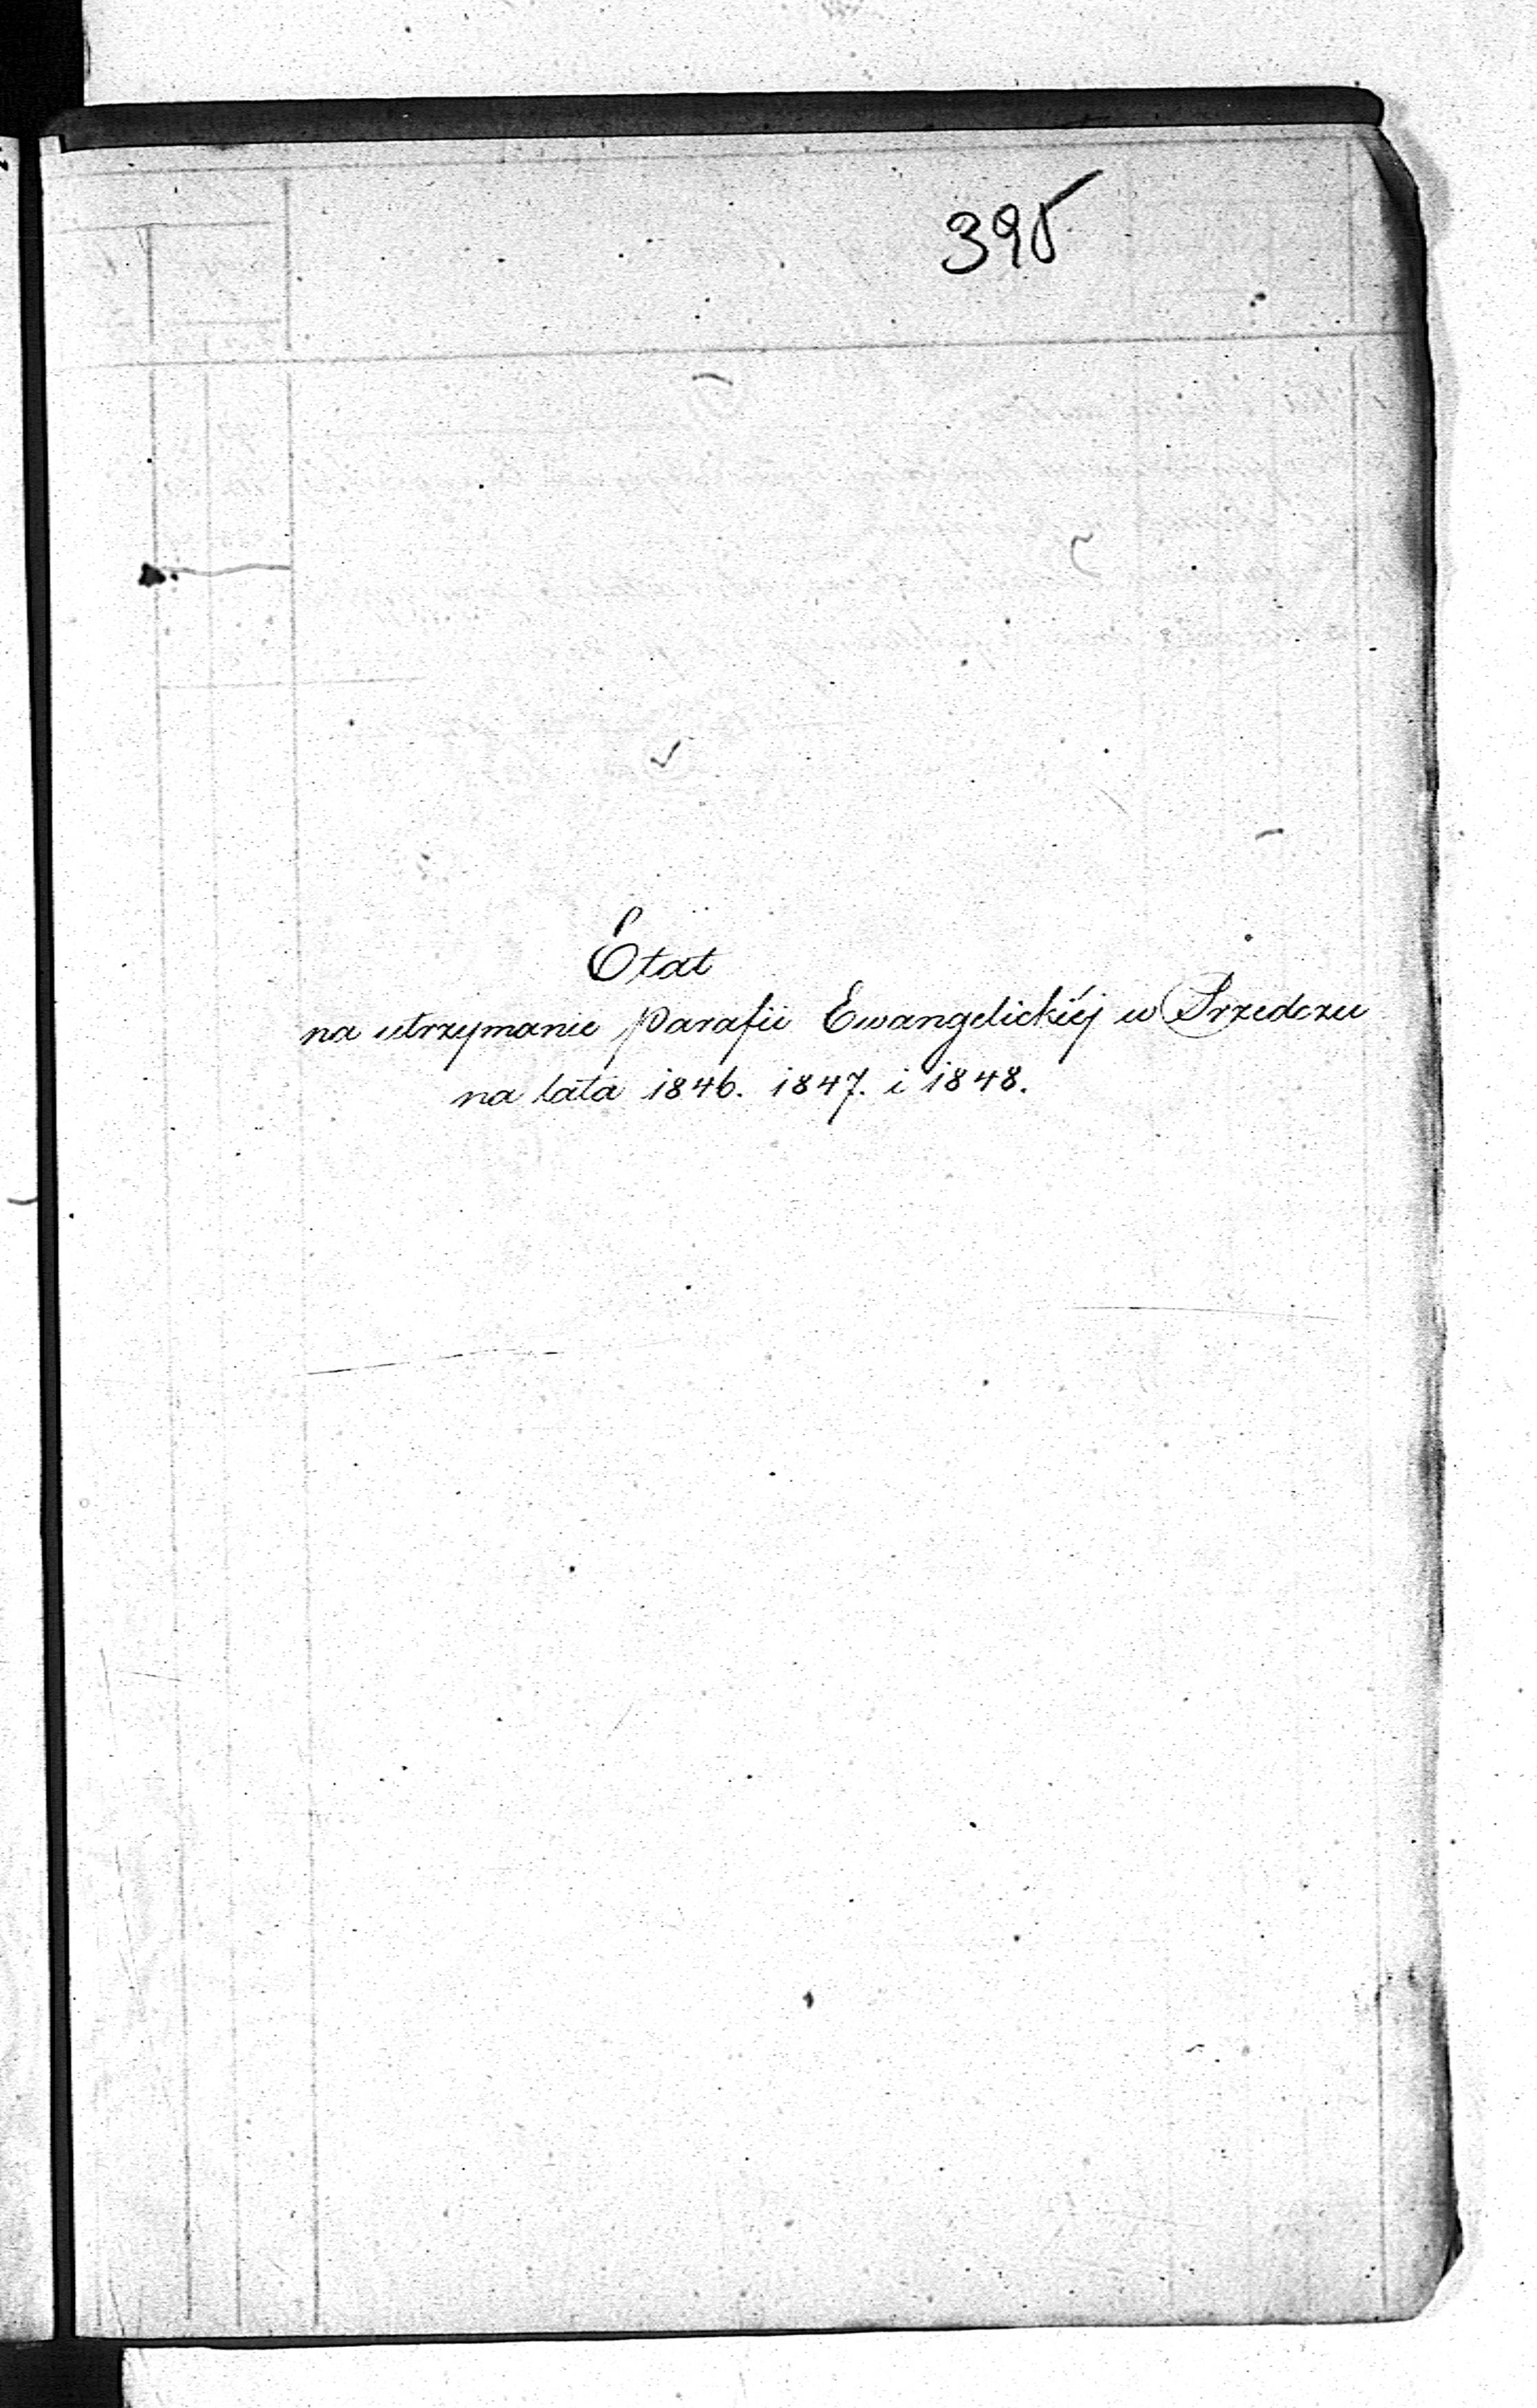 395
Etat
na utrzymanie Parafii Ewangelickiéj w Przedczu
na lata 1846. 1847. i 1848.